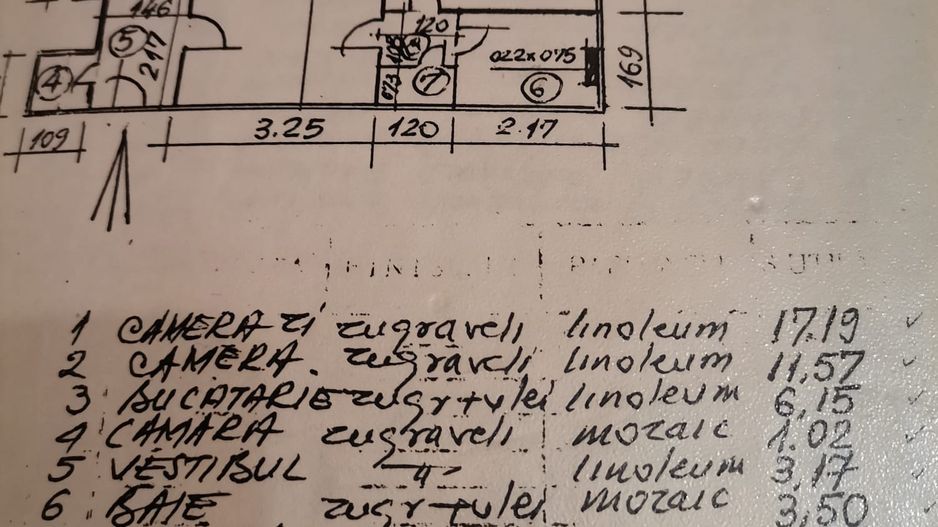 146
120
5
217
4
7
022x075
6
169
109
3.25
120
2.17
FINIS
1 CAMERA ZI zugraveli linoleum 17.19
2 CAMERA zugraveli linoleum 11,57
3 BUCATARIE zugr+ulei linoleum 6,15
4 CAMARA zugraveli mozaic 1.02
5 VESTIBUL —"— linoleum 3,17
6 BAIE zugr+ulei mozaic 3,50